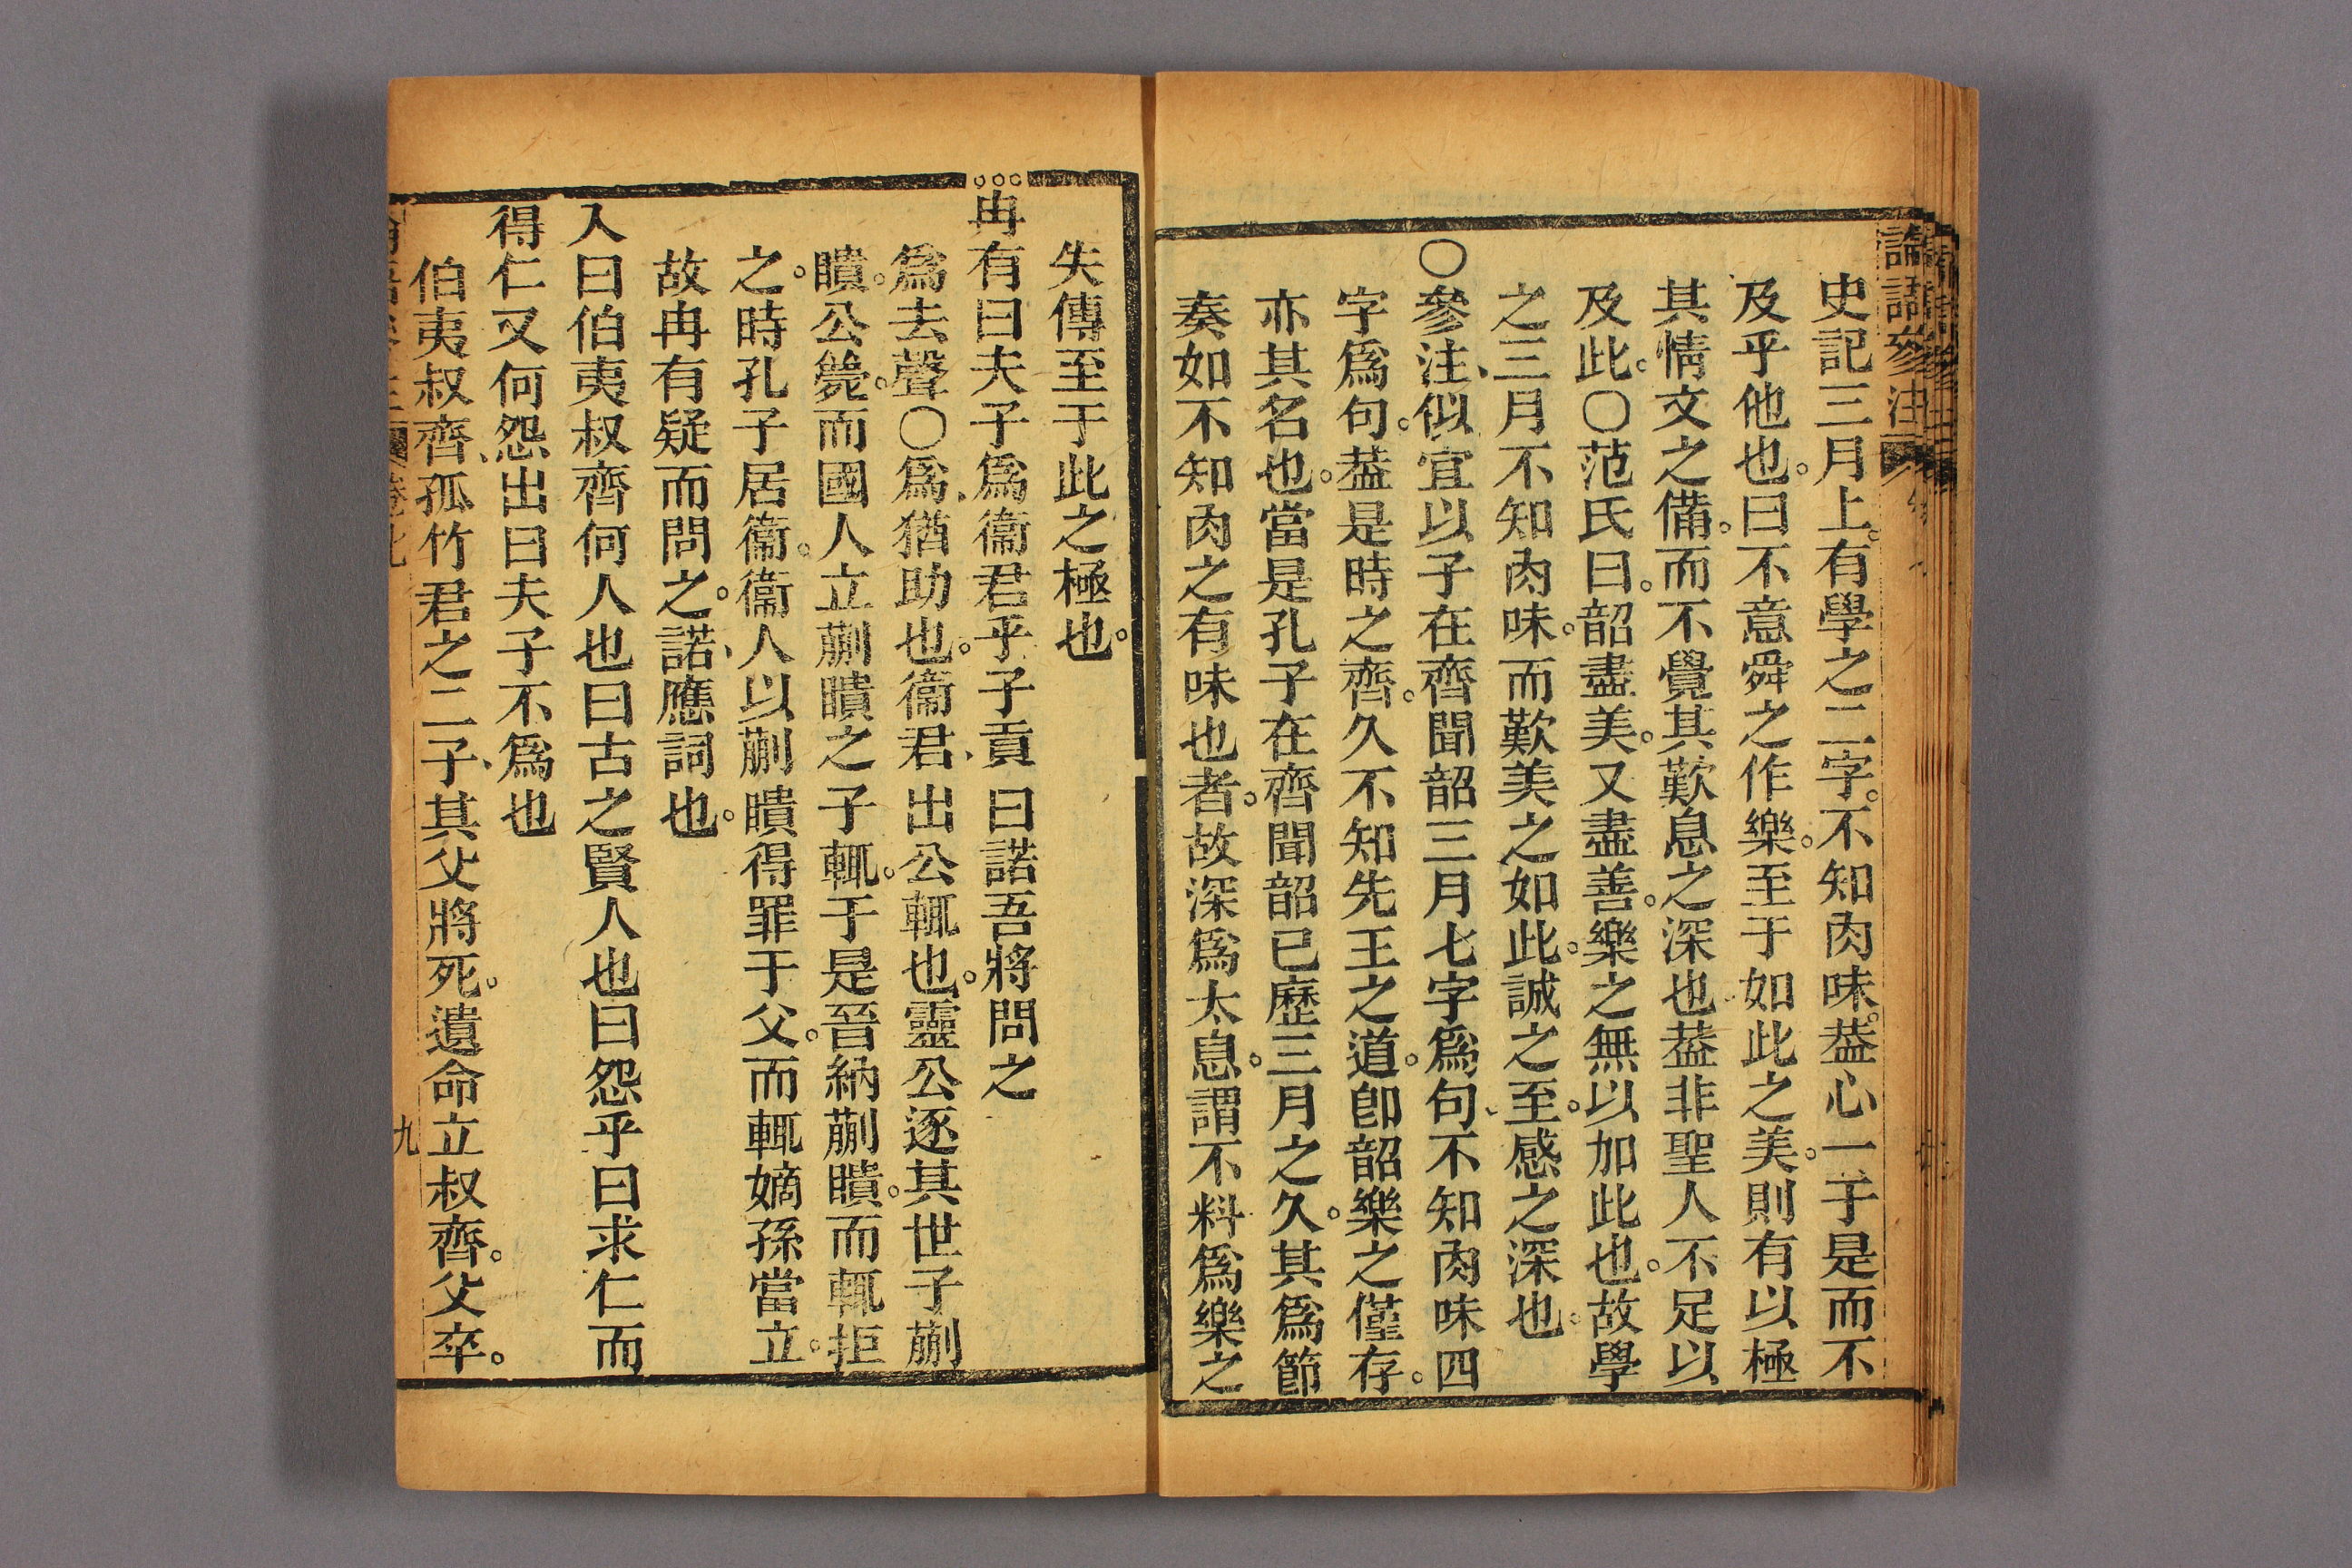 論語參注
史記三月上。有學之二字。不知肉味。葢心一于是而不
及乎他也。曰不意舜之作樂。至于如此之美。則有以極
其情文之備。而不覺其歎息之深也葢非聖人不足以
及此。〇范氏曰。韶盡美。又盡善。樂之無以加此也。故學
之三月不知肉味。而歎美之如此。誠之至。感之深也。
〇參注、似宜以子在齊聞韶三月七字爲句、不知肉味四
字爲句。葢是時之齊。久不知先王之道。卽韶樂之僅存。
亦其名也。當是孔子在齊聞韶已歷三月之久。其爲節
奏如不知肉之有味也者。故深爲太息。謂不料爲樂之
失傳至于此之極也。
冉有曰夫子爲衞君乎子貢曰諾吾將問之
爲去聲〇爲、猶助也。衞君、出公輒也。靈公逐其世子蒯
聵。公薨。而國人立蒯聵之子輒。于是晉納蒯聵。而輒拒
之。時孔子居衞。衞人以蒯聵得罪于父。而輒嫡孫當立。
故冉有疑而問之。諾、應詞也。
入曰伯夷叔齊何人也曰古之賢人也曰怨乎曰求仁而
得仁又何怨出曰夫子不爲也
伯夷叔齊、孤竹君之二子、其父將死。遺命立叔齊。父卒。
九